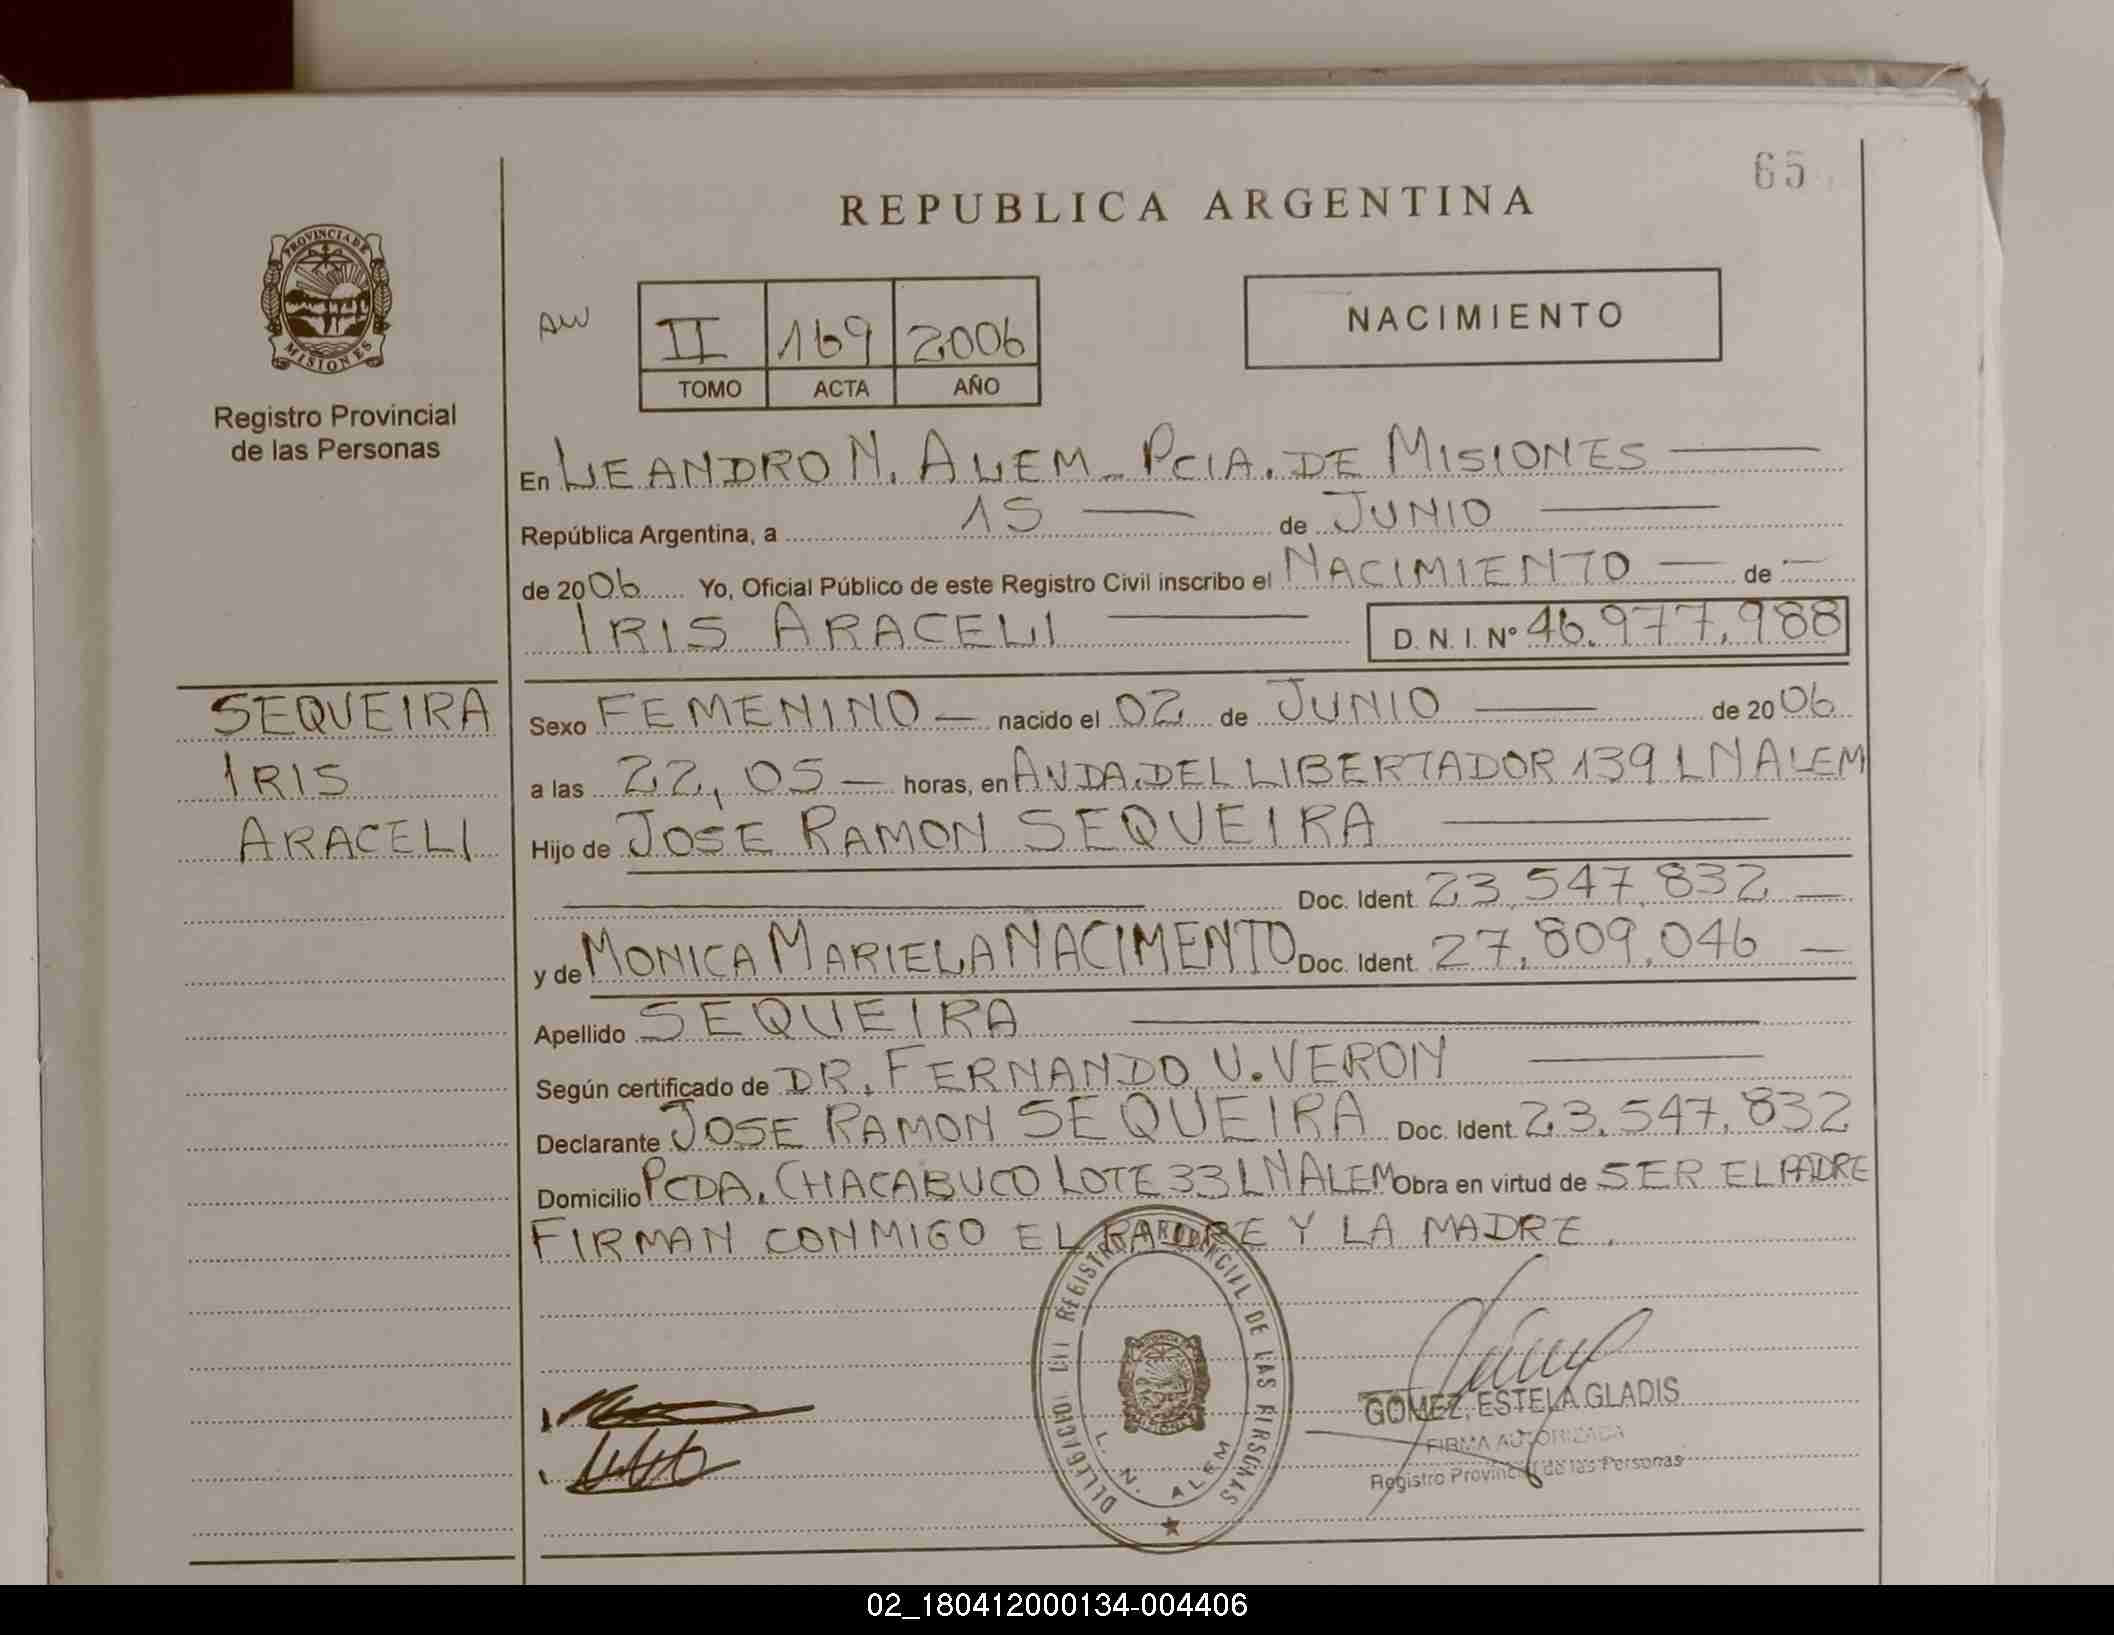 65
REPUBLICA ARGENTINA
PROVINCIA DE
MISIONES
Registro Provincial
de las Personas
II 169 2006
TOMO ACTA AÑO
NACIMIENTO
En LEANDRO N. ALEM - PCIA. DE MISIONES
República Argentina, a 15 de JUNIO
de 2006 Yo, Oficial Público de este Registro Civil inscribo el NACIMIENTO de
IRIS ARACELI D. N. I. Nº 46.977.988
SEQUEIRA
IRIS
ARACELI
Sexo FEMENINO nacido el 02 de JUNIO de 2006
a las 22,05 horas, en AVDA. DEL LIBERTADOR 139 L N ALEM
Hijo de JOSE RAMON SEQUEIRA
Doc. Ident. 23.547.832
y de MONICA MARIELA NACIMENTO Doc. Ident. 27.809.046
Apellido SEQUEIRA
Según certificado de DR. FERNANDO V. VERON
Declarante JOSE RAMON SEQUEIRA Doc. Ident. 23.547.832
Domicilio PCDA. CHACABUCO LOTE 33 L N ALEM Obra en virtud de SER EL PADRE
FIRMAN CONMIGO EL PADRE Y LA MADRE.
REGISTRO PROVINCIAL DE LAS PERSONAS
L. N. ALEM
GOMEZ, ESTELA GLADIS
FIRMA AUTORIZADA
Registro Provincial de las Personas
02_180412000134-004406